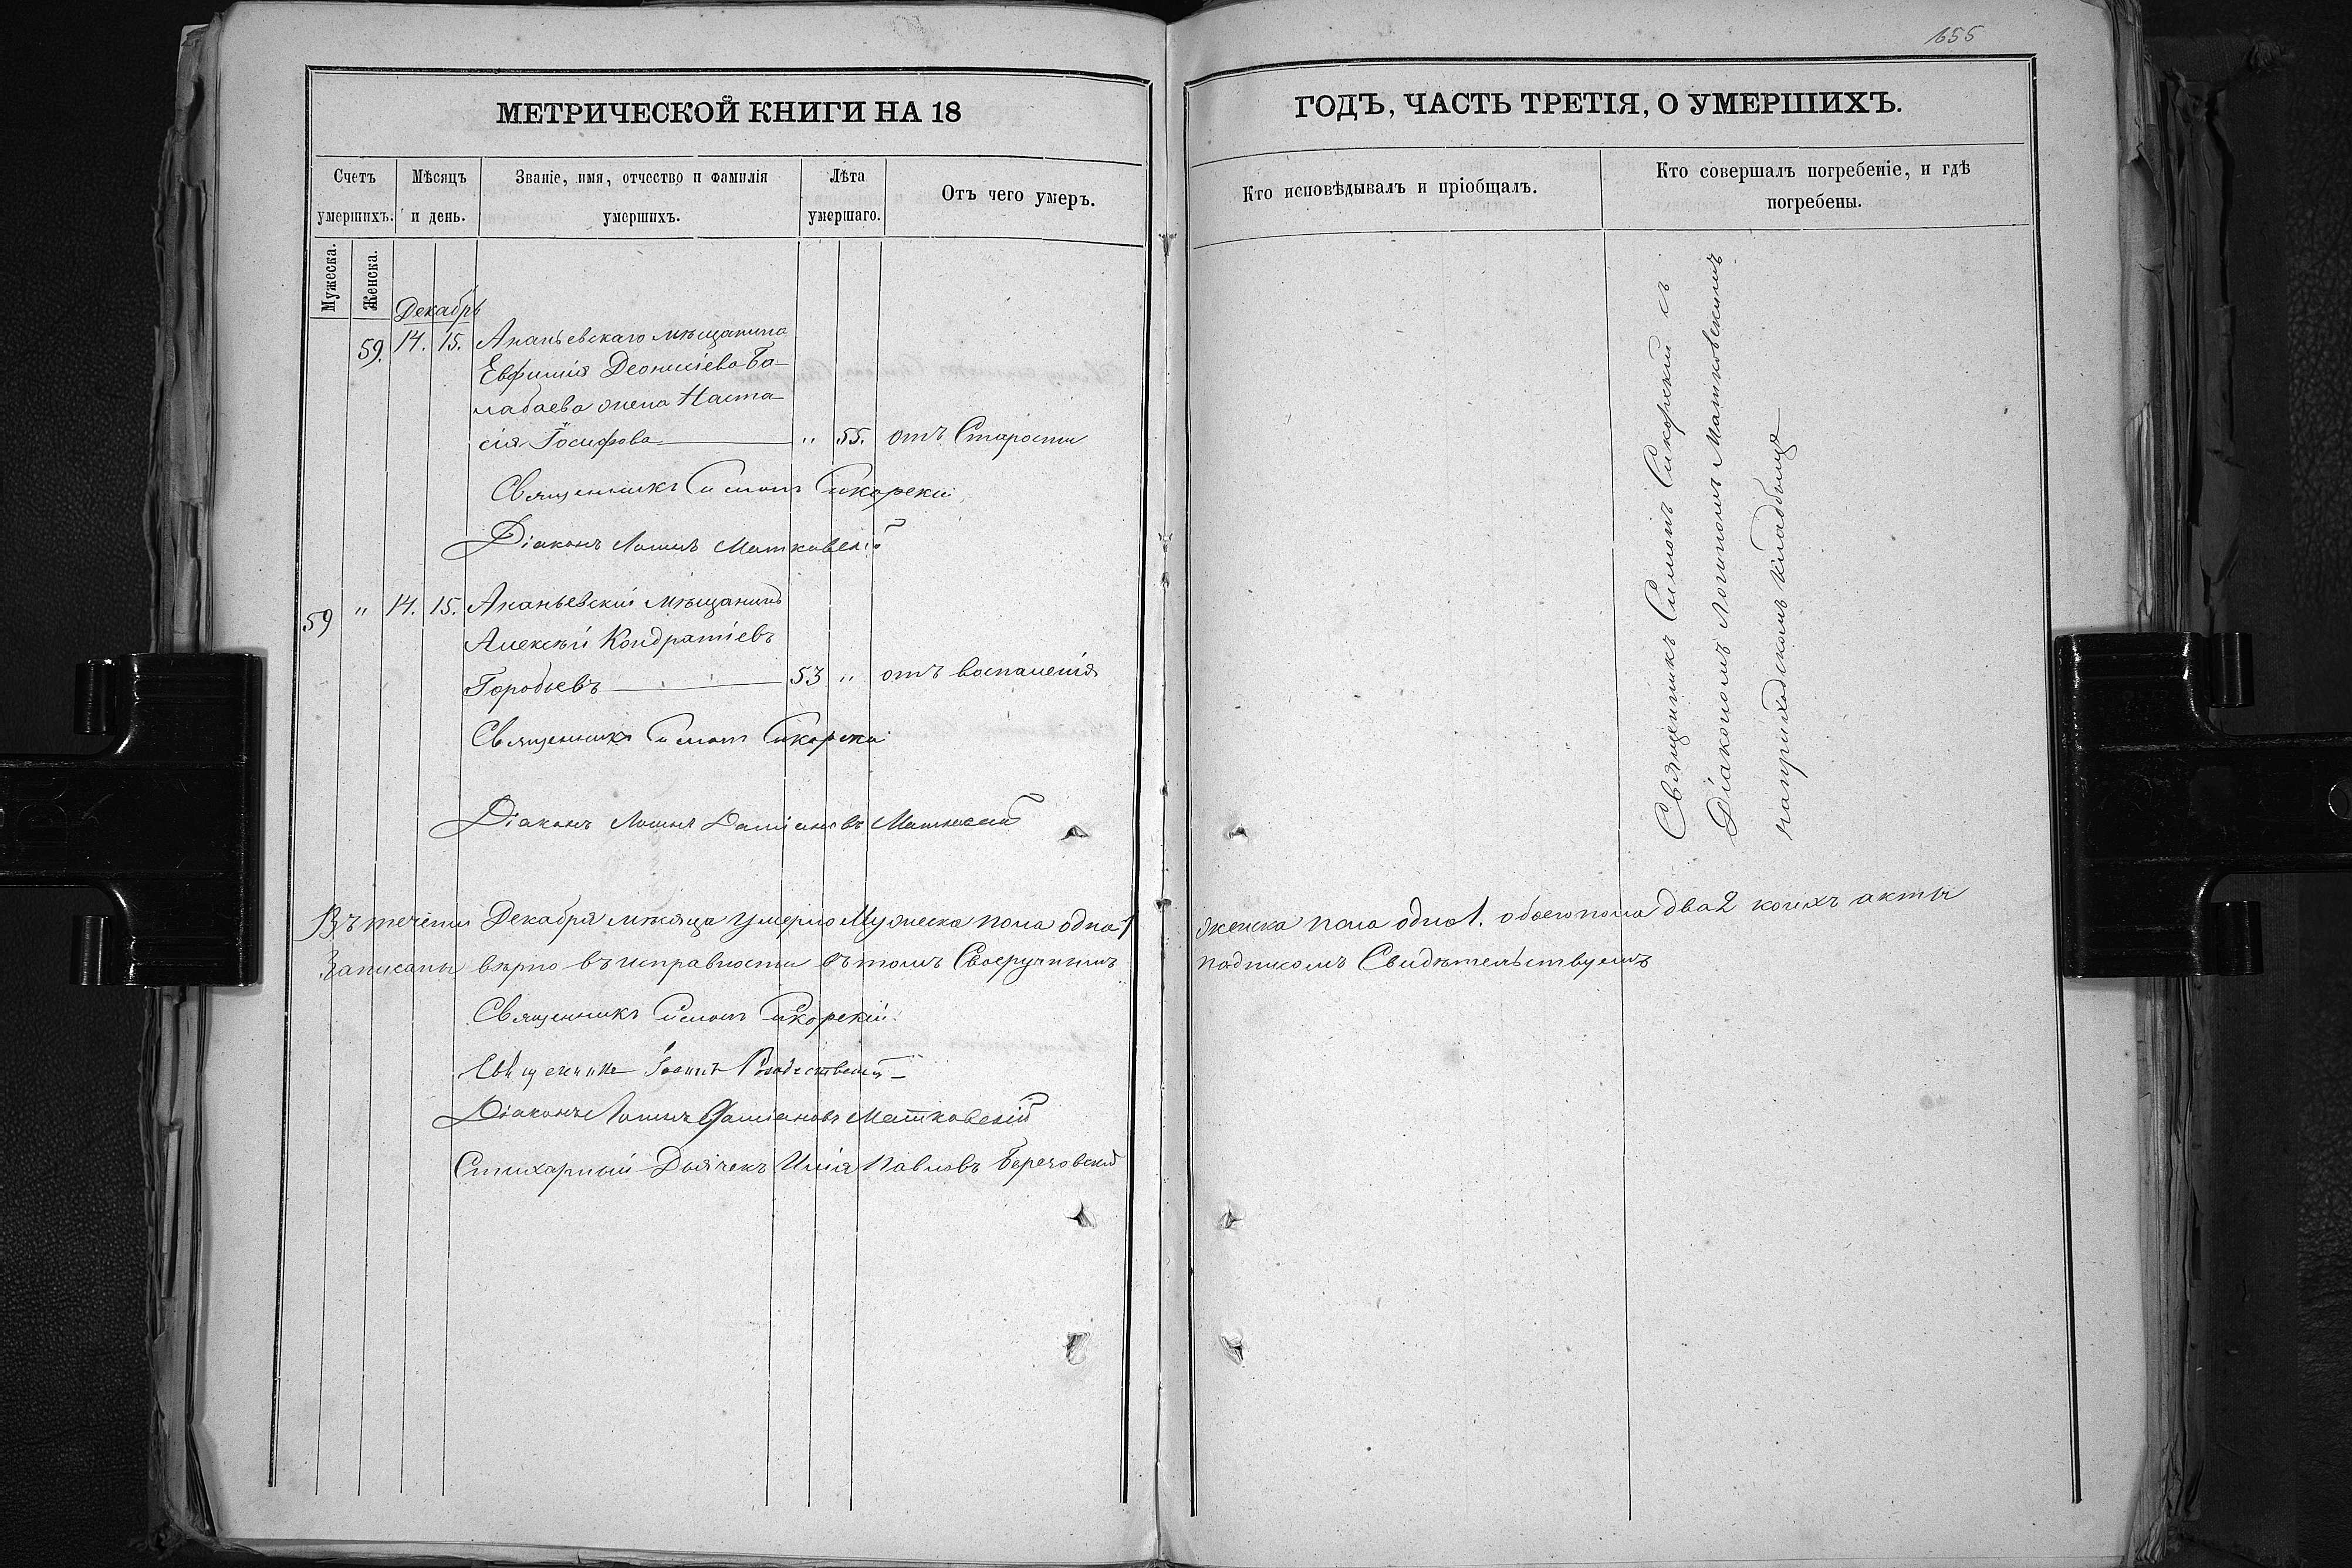 МЕТРИЧЕСКОЙ КНИГИ НА 18
Счетъ умершихъ.
Мѣсяцъ и день.
Званіе, имя, отчество и фамилія умершихъ.
Лѣта умершаго.
Отъ чего умеръ.
Мужеска.
Женска.
Декабрь
59. 14. 15. Ананьевскаго мѣщанина
Евфимія Деонисіева Ба-
лабаева жена Наста-
сія Іосифова " 55. отъ Старости
Священникъ Симонъ Сикорскій
Діаконъ Логинъ Матковскій
59 " 14. 15. Ананьевскій мѣщанинъ
Алексѣй Кондратіевъ
Горобьевъ 53 " отъ воспаленія
Священникъ Симонъ Сикорскій
Діаконъ Логинъ Даміановъ Матковскій
Въ теченіи Декабря мѣсяца умерло Мужеска пола одна 1
Записаны вѣрно въ исправности въ томъ Своеручнымъ
Священникъ Симонъ Сикорскій
Священникъ Іоаннъ Рождественскій
Діаконъ Логинъ Даміановъ Матковскій
Стихарный Дьячекъ Илія Павловъ Березовскій
155
ГОДЪ, ЧАСТЬ ТРЕТІЯ, О УМЕРШИХЪ.
Кто исповѣдывалъ и пріобщалъ.
Кто совершалъ погребеніе, и гдѣ погребены.
Священникъ Симонъ Сикорскій съ
Діакономъ Логиномъ Матковскимъ
на приходскомъ кладбищѣ
женска пола одна 1. обоего пола два 2 коихъ акты
подписомъ Свидѣтельствуемъ